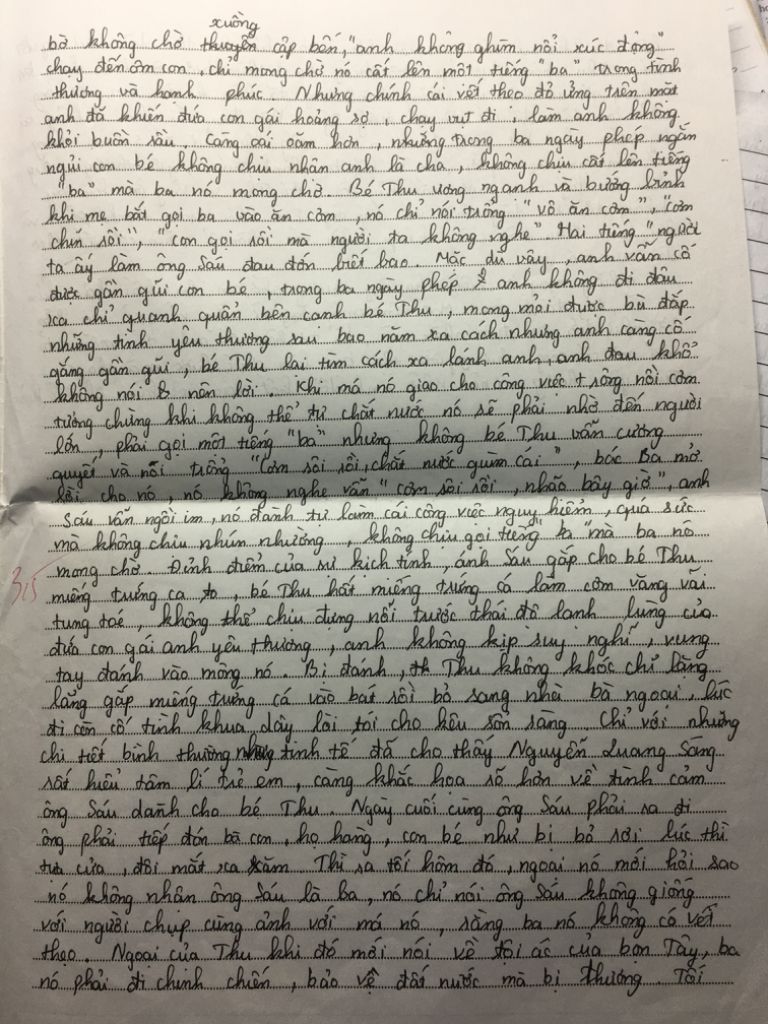 xuồng
bờ không chờ thuyền cập bến, "anh không ghìm nổi xúc động"
chạy đến ôm con, chỉ mong chờ nó cất lên một tiếng "ba" trong tình
thương và hạnh phúc. Nhưng chính cái vết thẹo đỏ ửng trên mặt
anh đã khiến đứa con gái hoảng sợ, chạy vụt đi, làm anh không
khỏi buồn sầu. Càng oái oăm hơn, những trong ba ngày phép ngắn
ngủi con bé không chịu nhận anh là cha, không chịu cất lên tiếng
"ba" mà ba nó mong chờ. Bé Thu ương ngạnh và bướng bỉnh
khi mẹ bắt gọi ba vào ăn cơm, nó chỉ nói trổng "vô ăn cơm", "cơm
chín rồi", "con gọi rồi mà người ta không nghe". Hai tiếng "người
ta ấy làm ông Sáu đau đớn biết bao. Mặc dù vậy, anh vẫn cố
được gần gũi con bé, trong ba ngày phép anh không đi đâu
xa chỉ quanh quẩn bên cạnh bé Thu, mong mỏi được bù đắp
những tình yêu thương sau bao năm xa cách nhưng anh càng cố
gắng gần gũi, bé Thu lại tìm cách xa lánh anh, anh đau khổ
không nói nên lời. Khi má nó giao cho công việc trông nồi cơm
tưởng chừng khi không thể tự chắt nước nó sẽ phải nhờ đến người
lớn, phải gọi một tiếng "ba" nhưng không bé Thu vẫn cương
quyết và nói trổng "Cơm sôi rồi, chắt nước giùm cái", bác Ba mở
lời cho nó, nó không nghe vẫn "cơm sôi rồi, nhão bây giờ", anh
Sáu vẫn ngồi im, nó đành tự làm cái công việc nguy hiểm, quá sức
mà không chịu nhún nhường, không chịu gọi tiếng "ba" mà ba nó
mong chờ. Đỉnh điểm của sự kịch tính, ánh Sáu gắp cho bé Thu
3,5
miếng trứng ca to, bé Thu hất miếng trứng cá làm cơm văng vãi
tung toé, không thể chịu đựng nổi trước thái độ lạnh lùng của
đứa con gái anh yêu thương, anh không kịp suy nghĩ, vung
tay đánh vào mông nó. Bị đánh, Thu không khóc chỉ lặng
lẳng gắp miếng trứng cá vào bát rồi bỏ sang nhà bà ngoại, lúc
đi còn cố tình khua dây lòi tói cho kêu rôn ràng. Chỉ với những
chi tiết bình thường nhưng tinh tế đã cho thấy Nguyễn Quang Sáng
rất hiểu tâm lí trẻ em, càng khắc họa rõ hơn về tình cảm
ông Sáu dành cho bé Thu. Ngày cuối cùng ông Sáu phải ra đi
ông phải tiếp đón bà con, họ hàng, con bé như bị bỏ rơi lúc thì
tựa cửa, đôi mắt xa xăm. Thì ra tối hôm đó, ngoại nó mới hỏi sao
nó không nhận ông Sáu là ba, nó chỉ nói ông Sáu không giống
với người chụp cùng ảnh với má nó, rằng ba nó không có vết
thẹo. Ngoại của Thu khi đó mới nói về tội ác của bọn Tây, ba
nó phải đi chinh chiến, bảo vệ đất nước mà bị thương. Tối